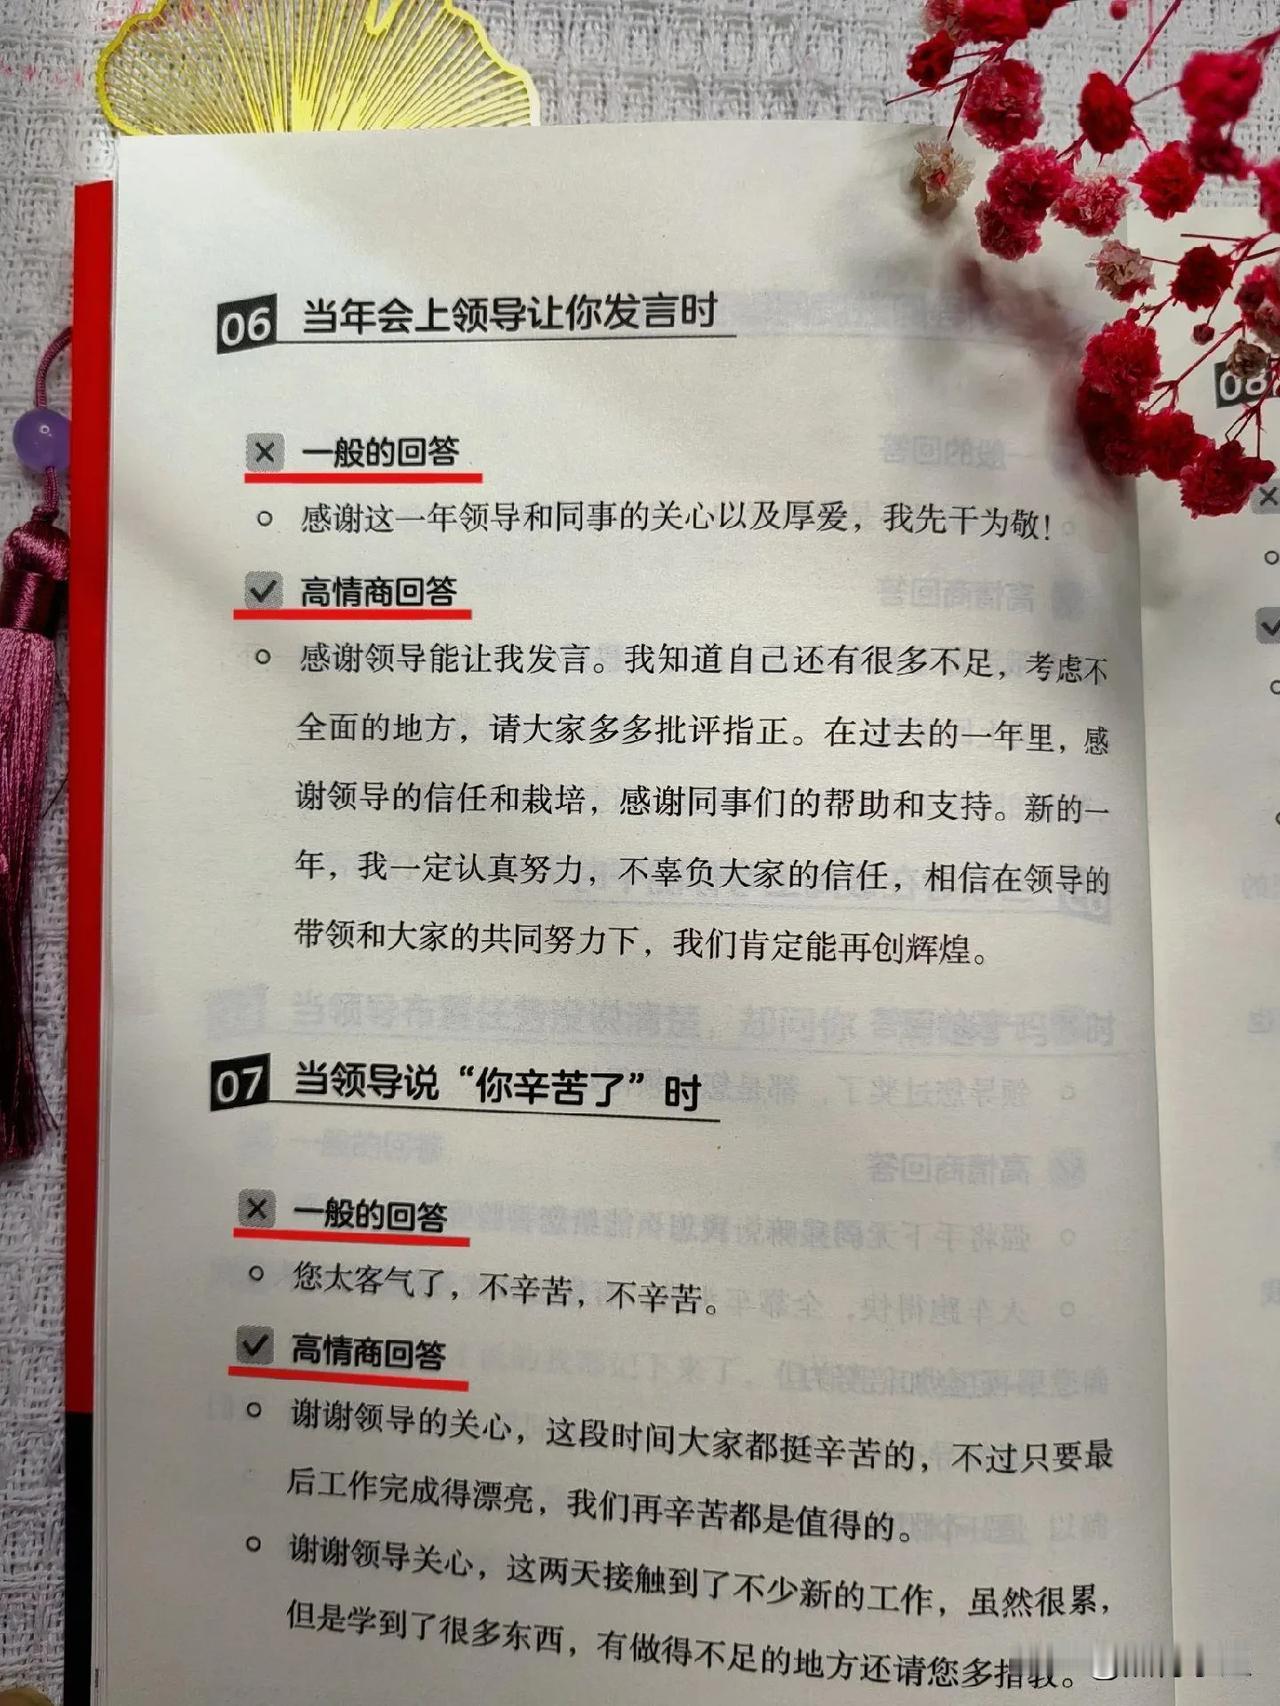 06 当年会上领导让你发言时
一般的回答
感谢这一年领导和同事的关心以及厚爱，我先干为敬！
高情商回答
感谢领导能让我发言。我知道自己还有很多不足，考虑不
全面的地方，请大家多多批评指正。在过去的一年里，感
谢领导的信任和栽培，感谢同事们的帮助和支持。新的一
年，我一定认真努力，不辜负大家的信任，相信在领导的
带领和大家的共同努力下，我们肯定能再创辉煌。
07 当领导说“你辛苦了”时
一般的回答
您太客气了，不辛苦，不辛苦。
高情商回答
谢谢领导的关心，这段时间大家都挺辛苦的，不过只要最
后工作完成得漂亮，我们再辛苦都是值得的。
谢谢领导关心，这两天接触到了不少新的工作，虽然很累，
但是学到了很多东西，有做得不足的地方还请您多指教。
08